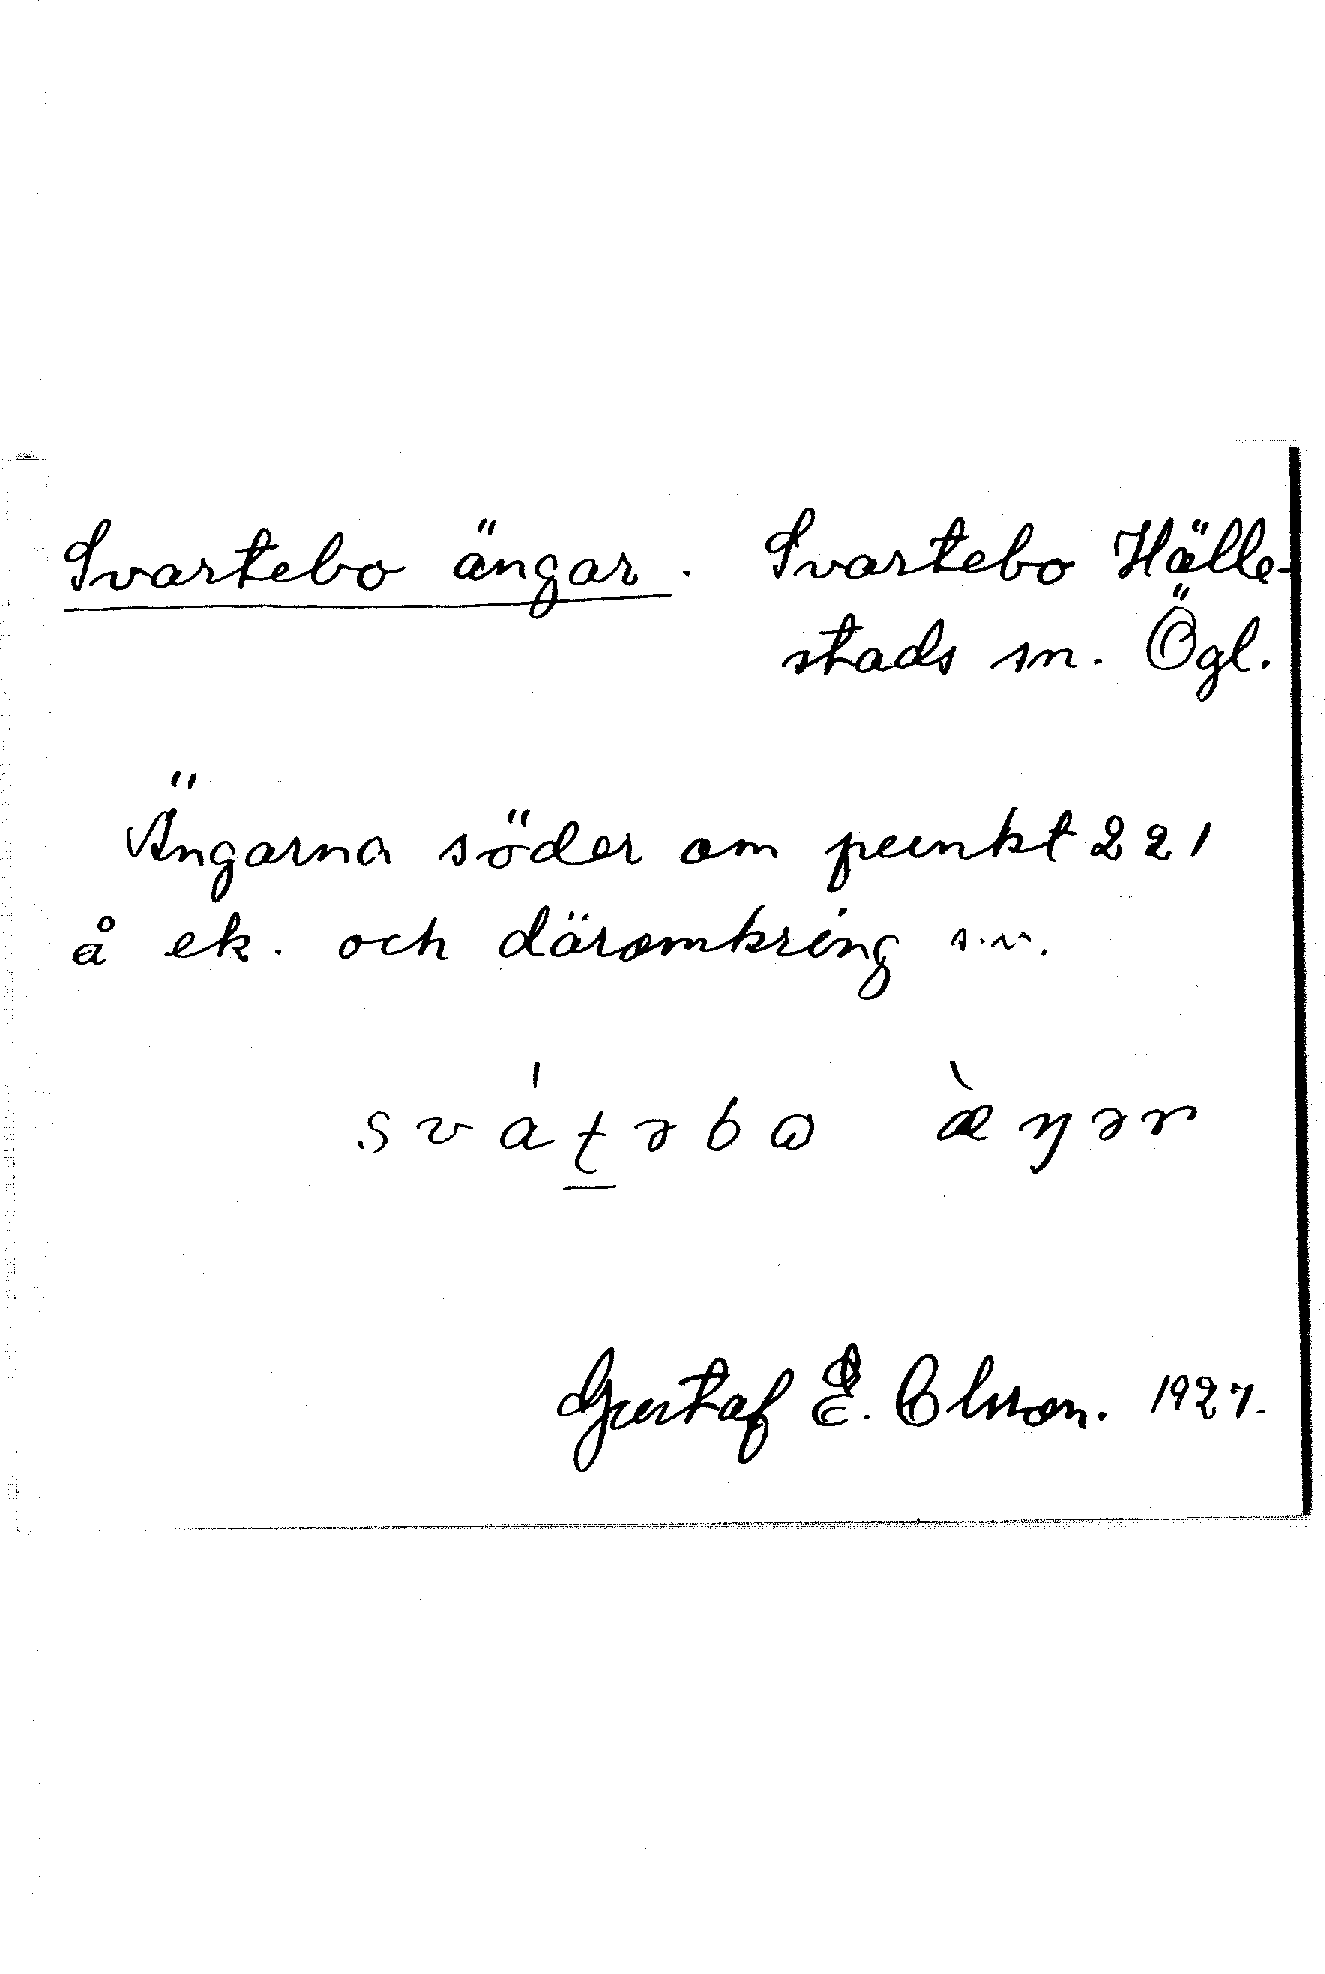 Svartebo ängar. Svartebo Hälle-
stads sn. Ögl.
Ängarna söder om punkt 221
å ek. och däromkring s.v.
sváṯəbɷ æ̀ŋər
Gustaf E. Olsson. 1927.